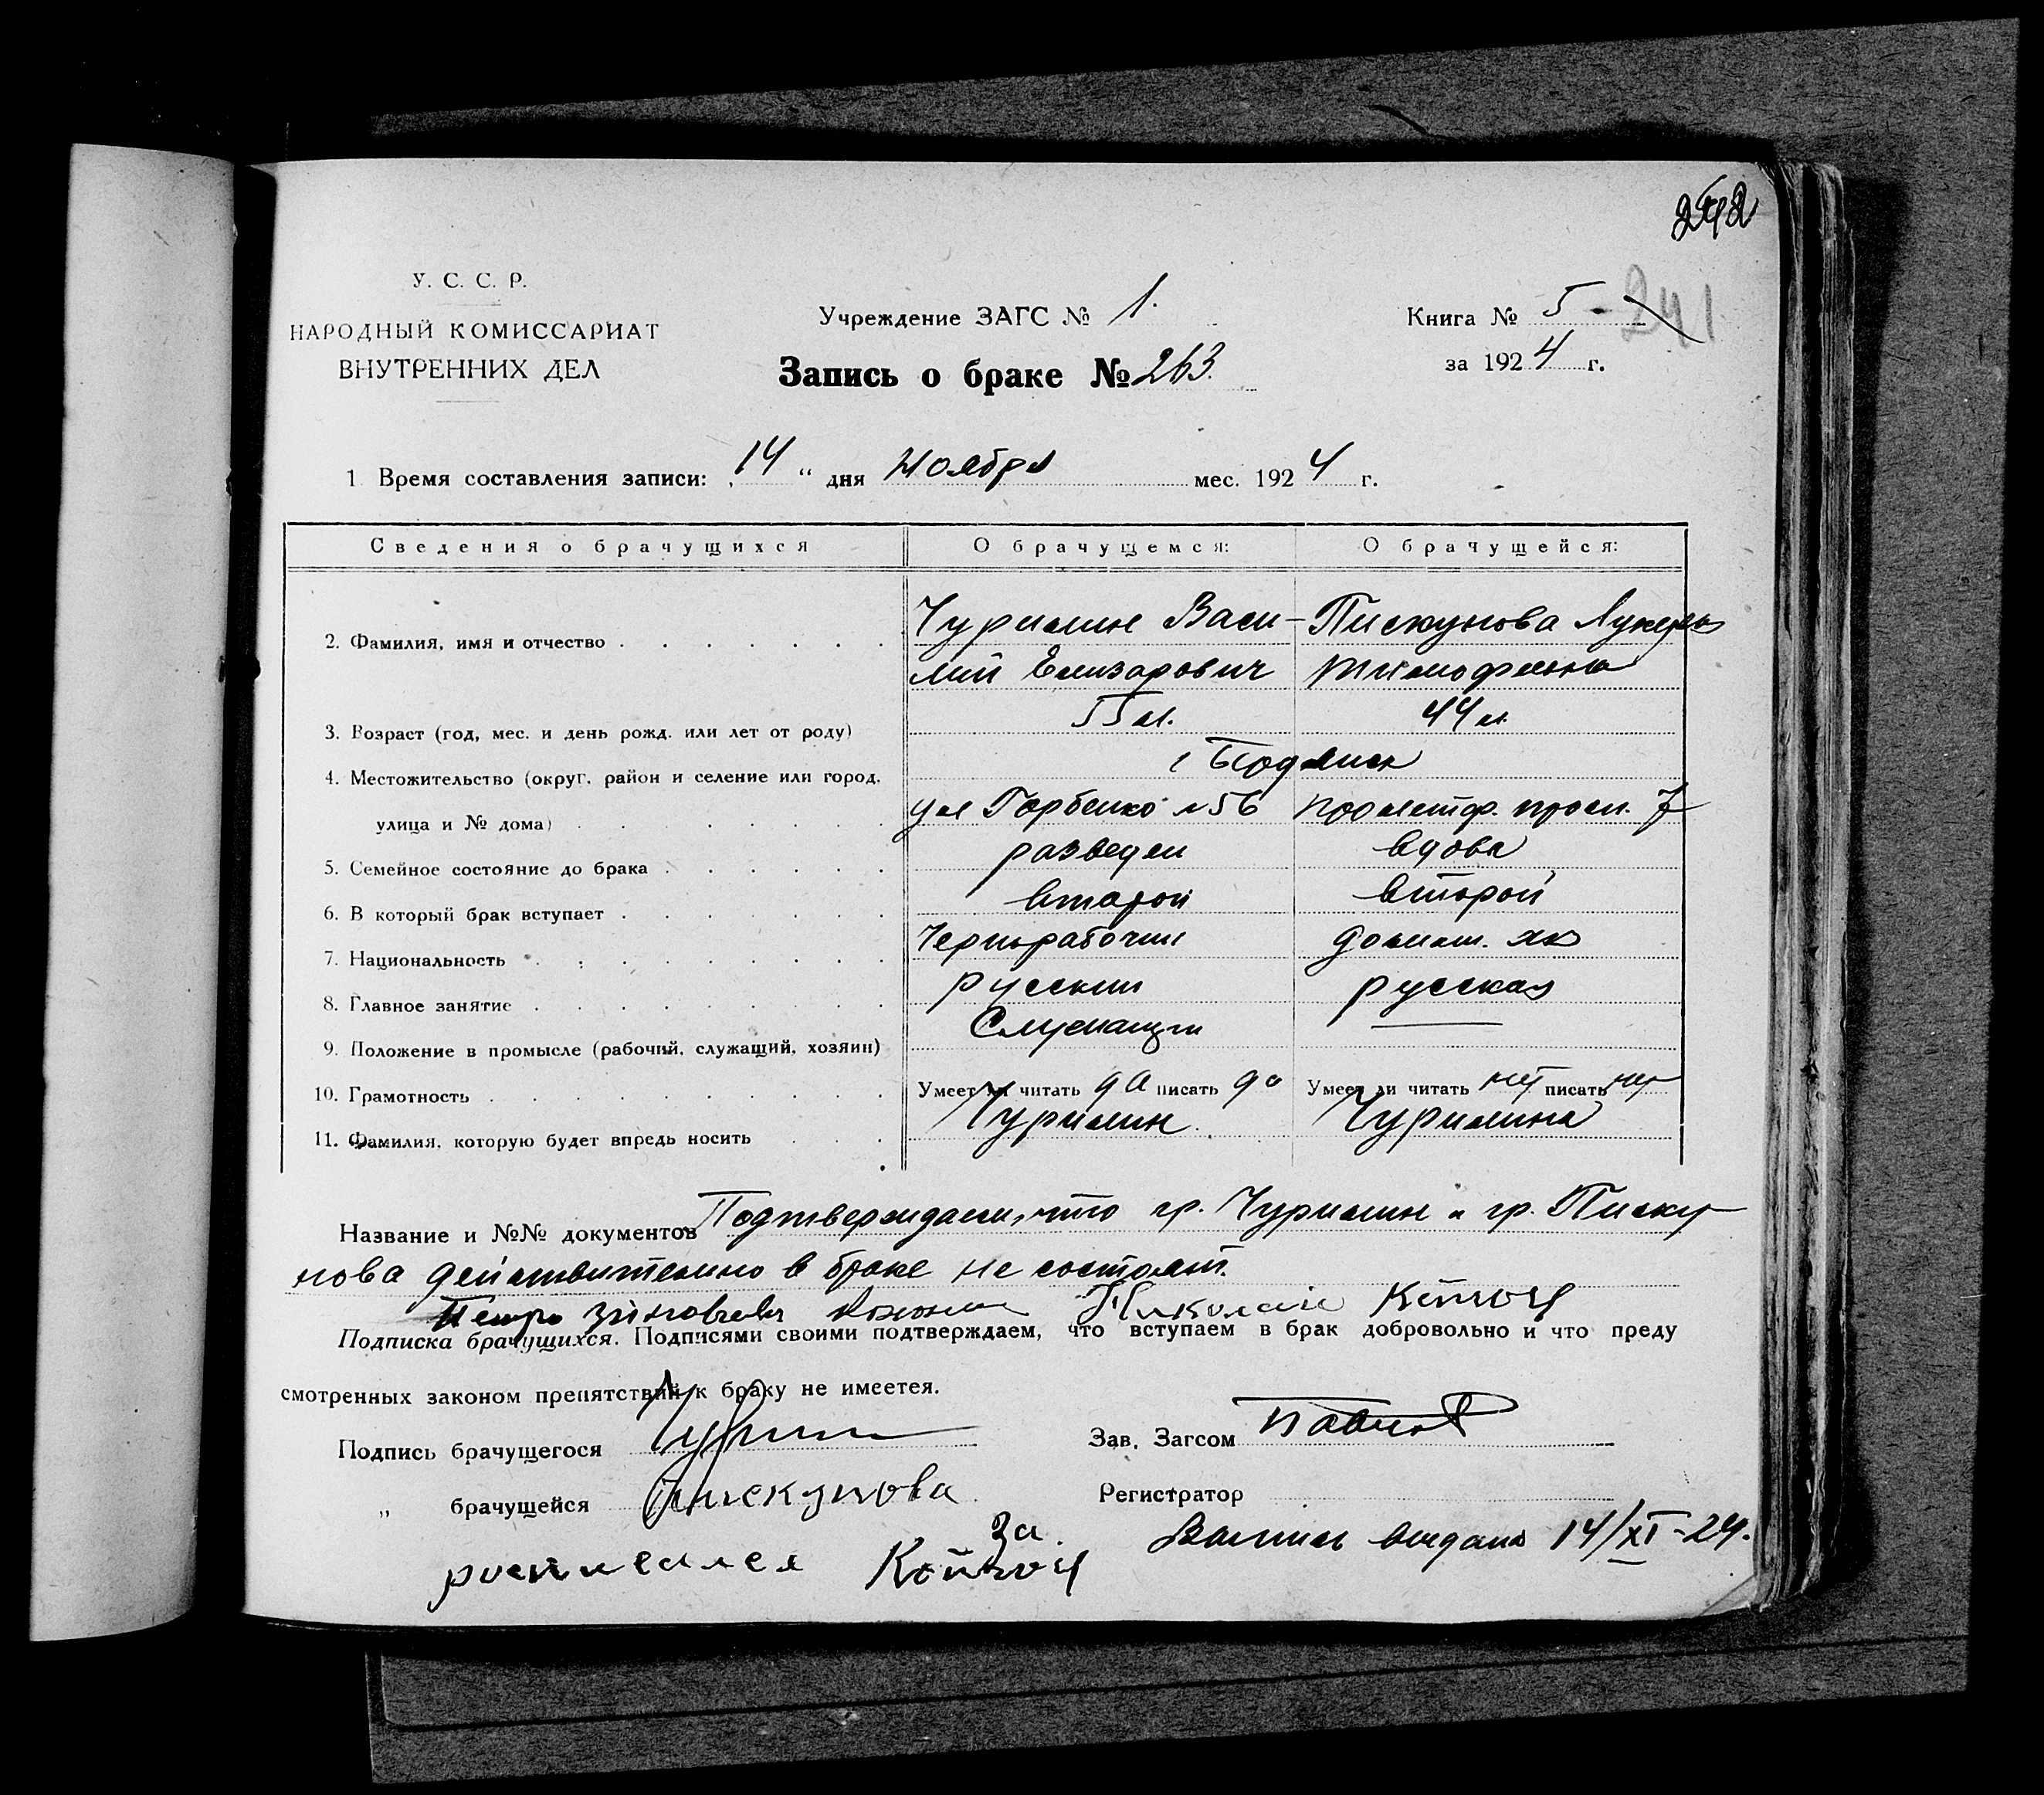 242
У. С. С. Р.
НАРОДНЫЙ КОМИССАРИАТ
ВНУТРЕННИХ ДЕЛ
Учреждение ЗАГС № 1.
Книга № 5 - 241
Запись о браке № 263.
за 1924 г.
1 Время составления записи: „14“ дня ноября мес. 1924 г.
Сведения о брачущихся О брачущемся: О брачущейся:
Чурилин Васи- Пискунова Лукерья
2. Фамилия, имя и отчество
лий Елизарович Тимофеевна
55 л. 44 л.
3. Возраст (год, мес. и день рожд. или лет от роду)
г Бердянск
4. Местожительство (округ, район и селение или город,
ул Горбенко № 56 пролетар. просп. 7
улица и № дома)
разведен вдова
5. Семейное состояние до брака
второй второй
6. В который брак вступает
Чернорабочий домаш. хоз
7. Национальность
русский русская
8. Главное занятие
Служащий
9. Положение в промысле (рабочий, служащий, хозяин)
10. Грамотность Умеет ли читать да писать да Умеет ли читать нет писать нет
Чурилин Чурилина
11. Фамилия, которую будет впредь носить
Название и №№ документов Подтверждаем, что гр. Чурилин и гр. Писку-
нова действительно в браке не состоят.
Петро Зиновьев Николай
Подписка брачущихся. Подписями своими подтверждаем, что вступаем в брак добровольно и что преду
смотренных законом препятствий к браку не имеетея.
Подпись брачущегося
Зав. Загсом
„ брачущейся Пискунова
Регистратор
за
росписался
Выпись выдана 14/XI-24.